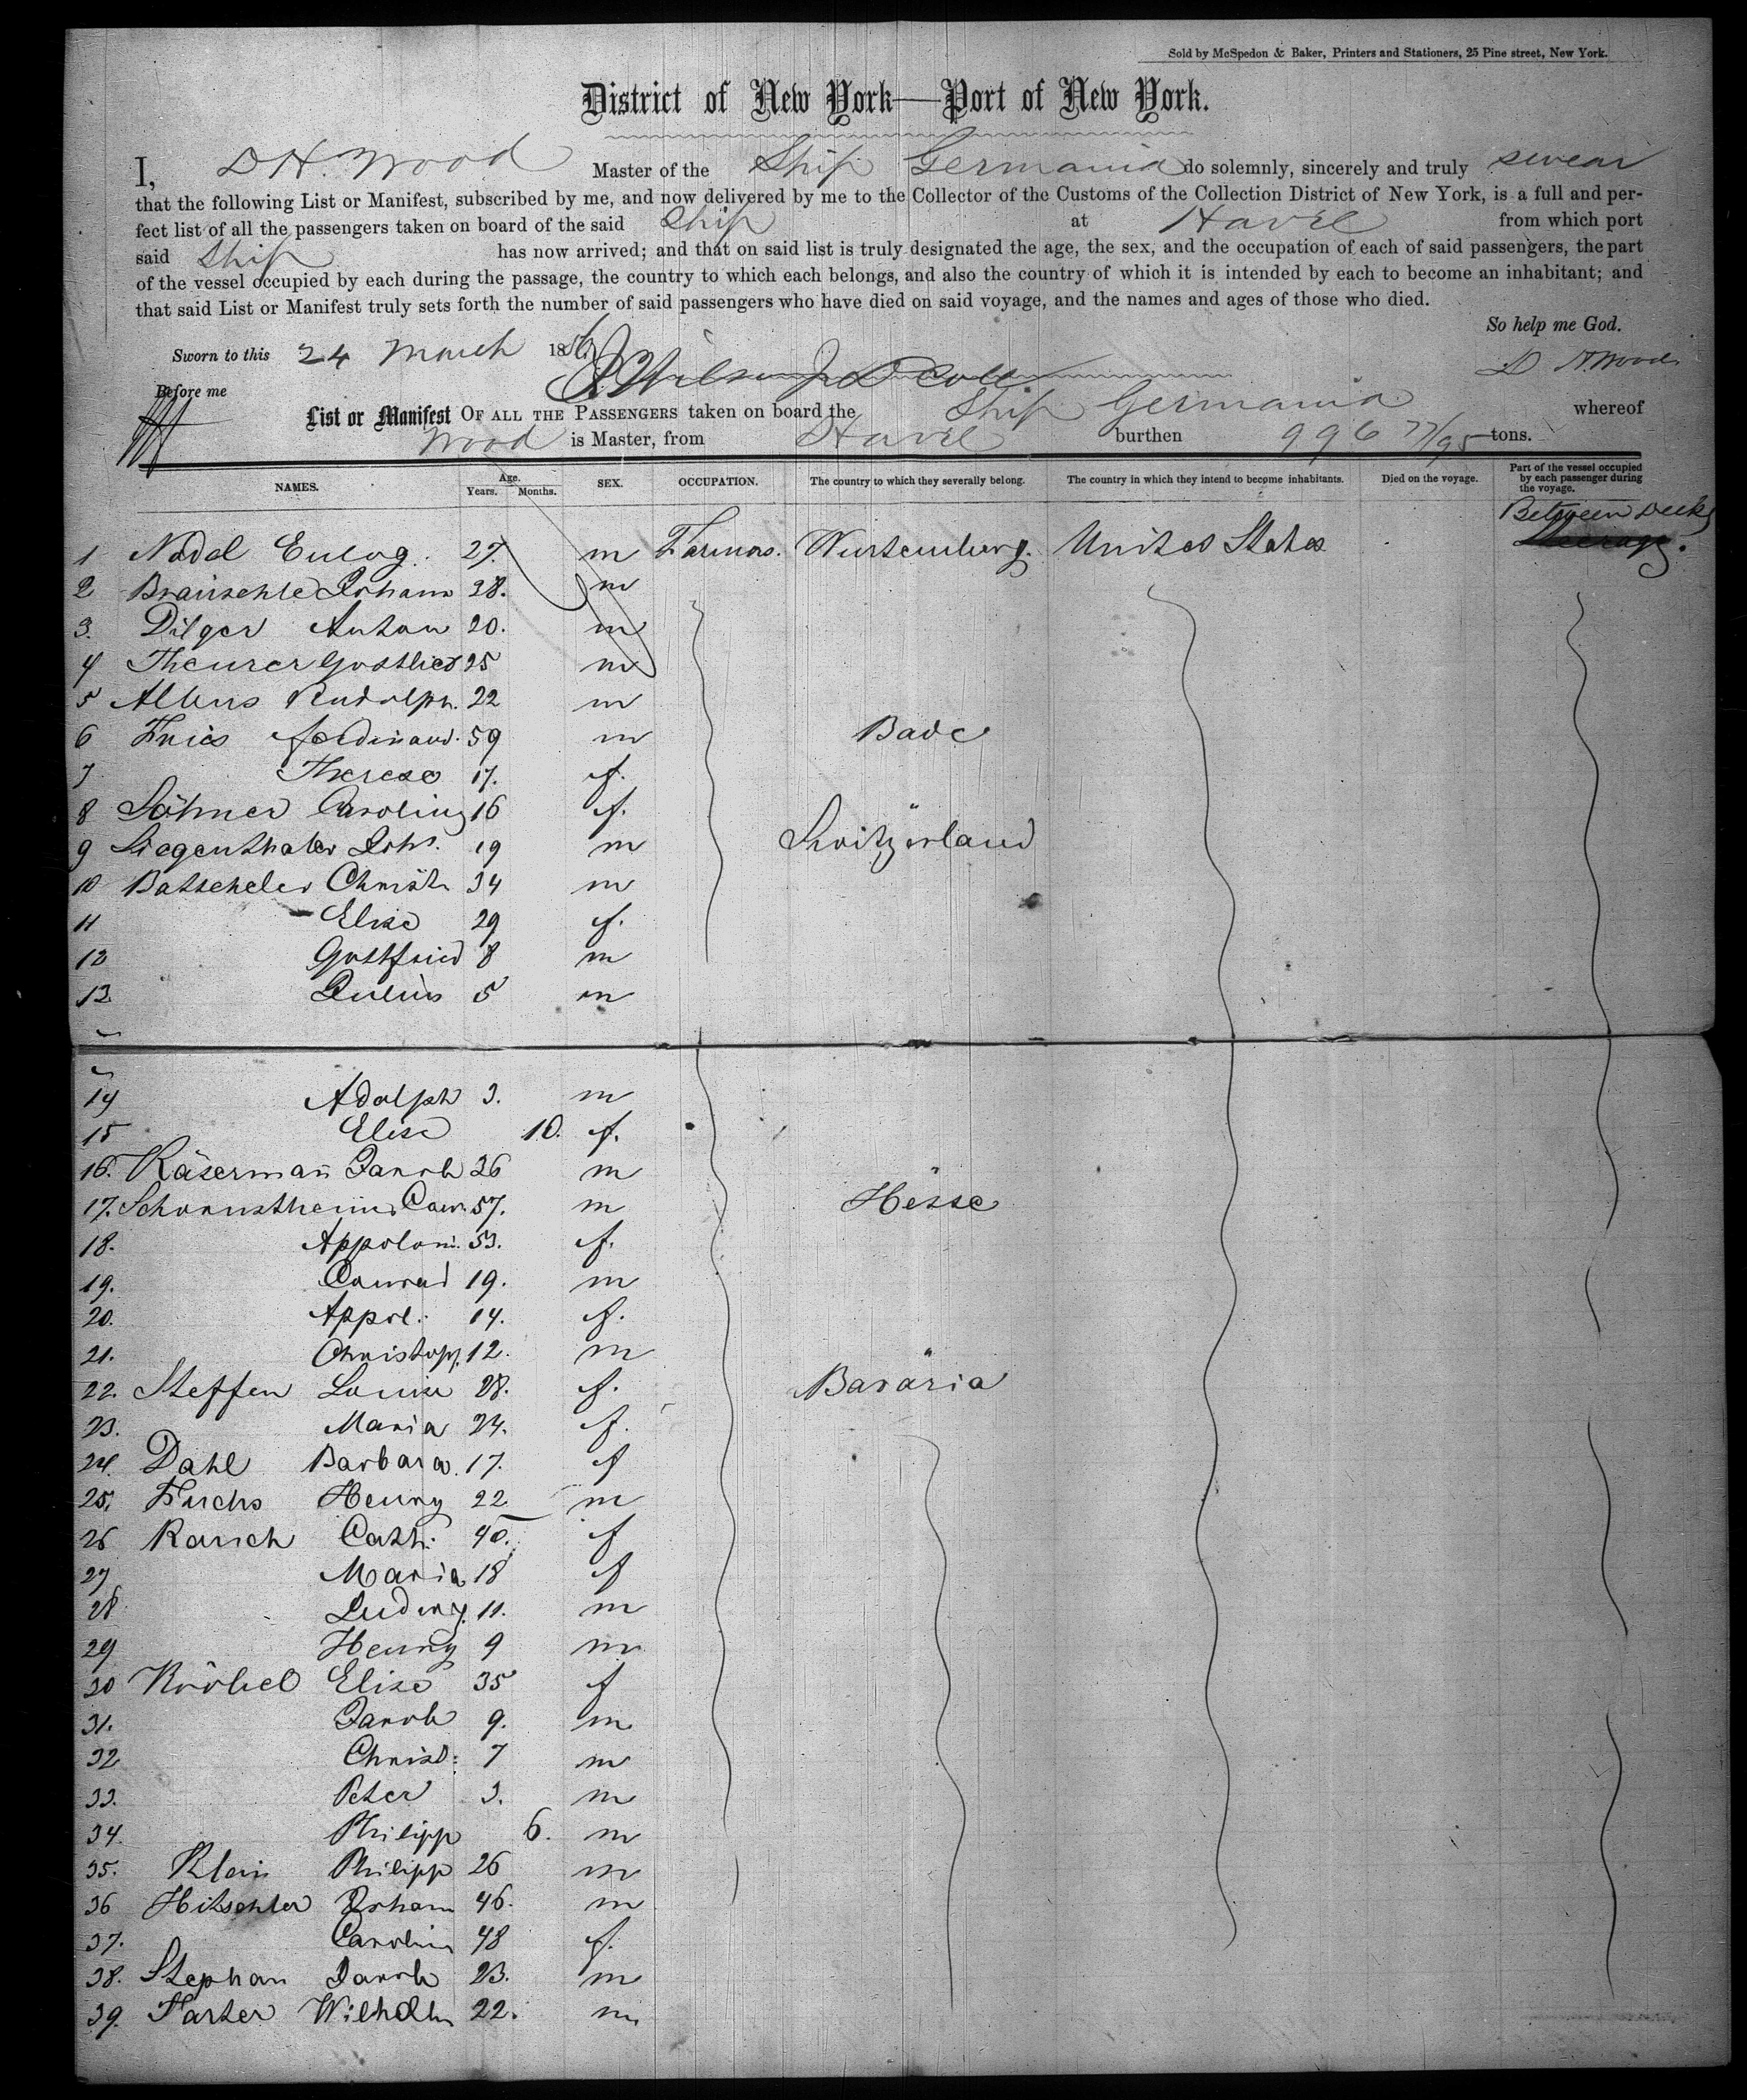 Sold by McSpedon & Baker, Printers and Stationers, 25 Pine street, New York.
District of New York—Port of New York.
I, D H. Wood Master of the Ship Germania do solemnly, sincerely and truly swear
that the following List or Manifest, subscribed by me, and now delivered by me to the Collector of the Customs of the Collection District of New York, is a full and per-
fect list of all the passengers taken on board of the said Ship at Havre from which port
said Ship has now arrived; and that on said list is truly designated the age, the sex, and the occupation of each of said passengers, the part
of the vessel occupied by each during the passage, the country to which each belongs, and also the country of which it is intended by each to become an inhabitant; and
that said List or Manifest truly sets forth the number of said passengers who have died on said voyage, and the names and ages of those who died.
So help me God.
Sworn to this 24 March 1856 D H. Wood
Before me
List or Manifest OF ALL THE PASSENGERS taken on board the Ship Germania whereof
Wood is Master, from Havre burthen 996 77/95 tons.
NAMES. Age. Years. Months. SEX. OCCUPATION. The country to which they severally belong. The country in which they intend to become inhabitants. Died on the voyage. Part of the vessel occupied by each passenger during the voyage.
Between Decks
1 Nadel Eulog. 27. m Farmers. Wurtemberg. United States Steerage.
2 Bräuschle Johann 28. m
3. Dilger Anton 20. m
4 Theurer Gottlieb 25 m
5 Albus Rudolph. 22 m
6 Fries Ferdinand. 59 m Bade
7 Therese 17. f.
8 Söhner Caroline 16 f. "
9 Siegenthaler Joh. 19 m Switzerland
10 Batscheler Christ. 34 m
11 Elise 29 f.
12 Gottfried 8 m
13. Julius 5 m
14 Adolph 3. m
15 Elise 10. f.
16. Käserman̄ Jacob 26 m "
17. Cour. 57. m Hesse
18. Appoloni. 53. f.
19. Conrad 19. m
20. Appol. 14. f.
21. Christoph. 12. m "
22. Steffen Louise 28. f. Bavaria
23. Maria 24. f.
24. Dahl Barbara. 17. f
25. Fuchs Henry 22 m
26 Rauch Cath: 40. f
27 Maria 18 f
28 Ludwig. 11. m
29 Henry 9 m
30 Kröbel Elise 35 f
31. Jacob 9. m
32 Christ: 7 m
33. Peter 3. m
34. Philipp 6. m
35. Klein Philipp 26 m
36 Hitschler Johann 46. m
37. Carolin 48 f.
38. Stephan Jacob 23. m
39. Farter Wilhelm 22. m